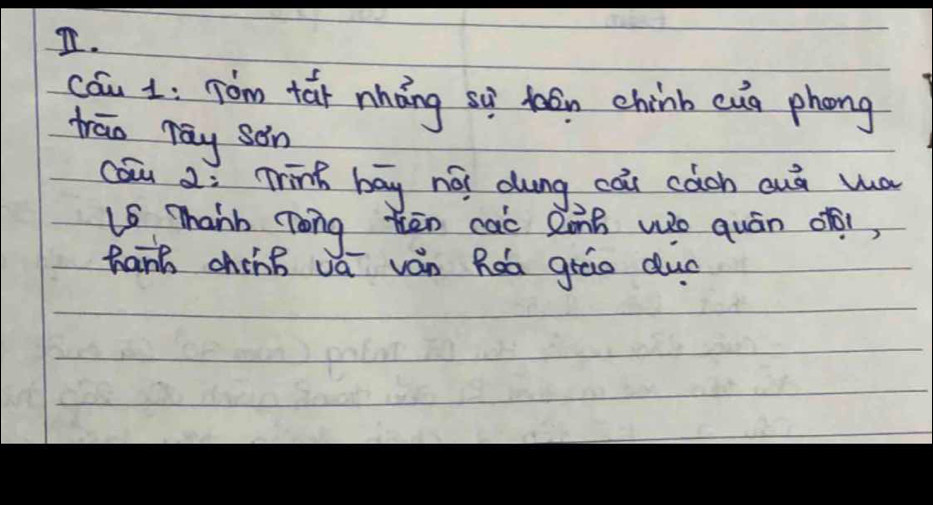 II.
Câu 1: Tóm tắt những sự kiện chính của phong
trào Tây Sơn
Câu 2: Trình bày nội dung cải cách của vua
Lê Thánh Tông trên các lĩnh vực quân đội,
hành chính và văn hóa giáo dục